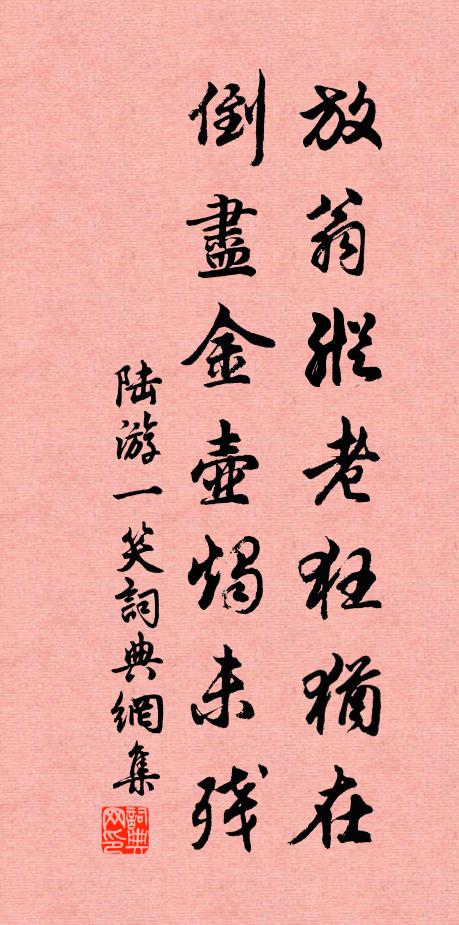 放翁縱老狂猶在
倒盡金壺燭未殘
陆游一笑詞典網集
詞典网印